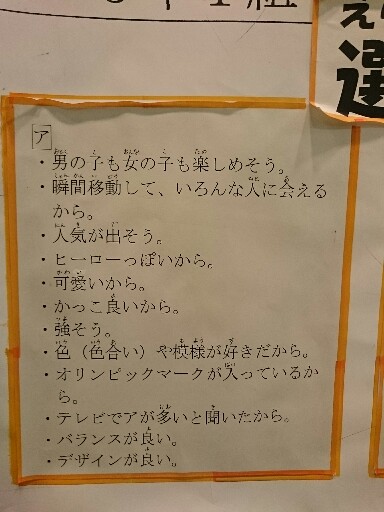 年1組
選
ア
・男の子も女の子も楽しめそう。
・瞬間移動して、いろんな人に会える
から。
・人気が出そう。
・ヒーローっぽいから。
・可愛いから。
・かっこ良いから。
・強そう。
・色（色合い）や模様が好きだから。
・オリンピックマークが入っているか
ら。
・テレビでアが多いと聞いたから。
・バランスが良い。
・デザインが良い。